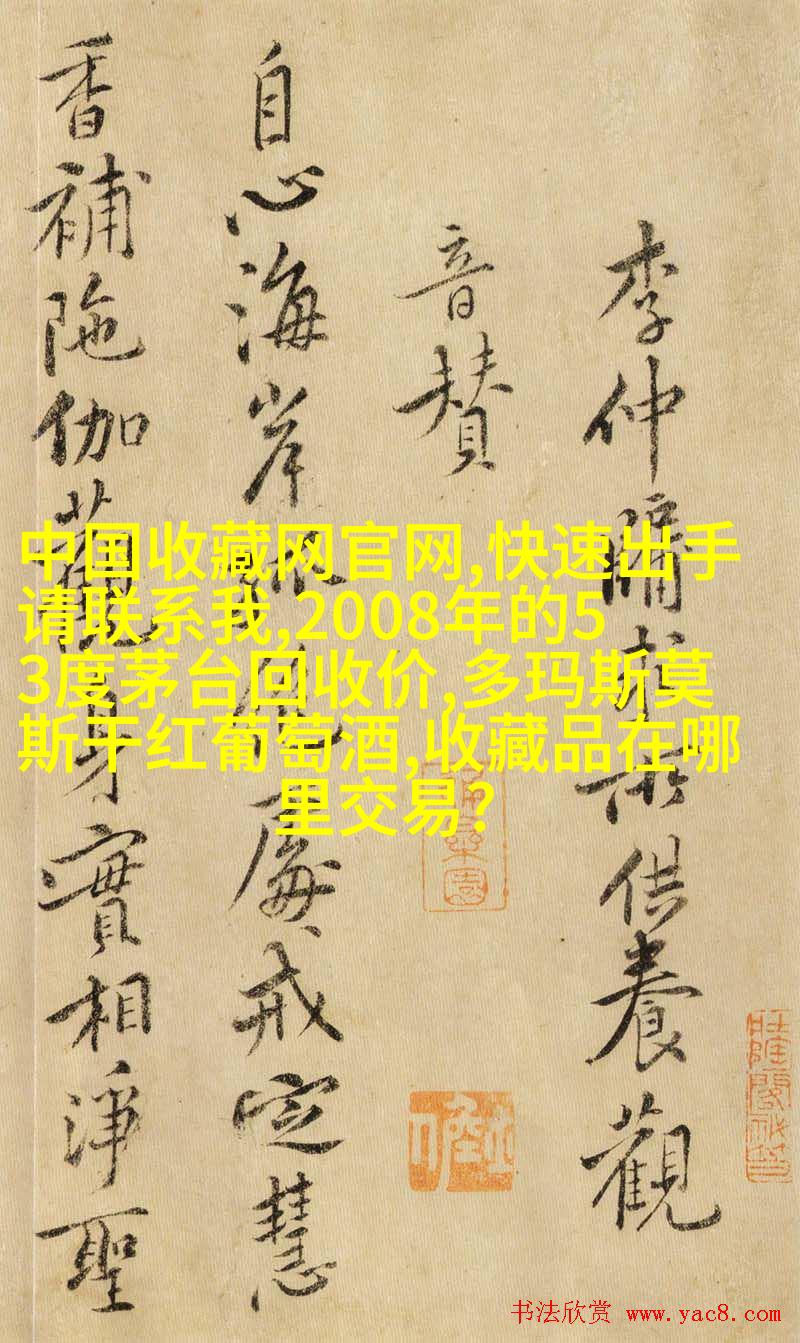 李仲牖求所供養觀
音賛
自心海岸處戒定慧
香補陁伽觀身實相淨聖
中国收藏网官网,快速出手
请联系我,2008年的5
3度茅台回收价,多玛斯莫
斯干红葡萄酒,收藏品在哪
里交易?
书法欣赏 www.yac8.com